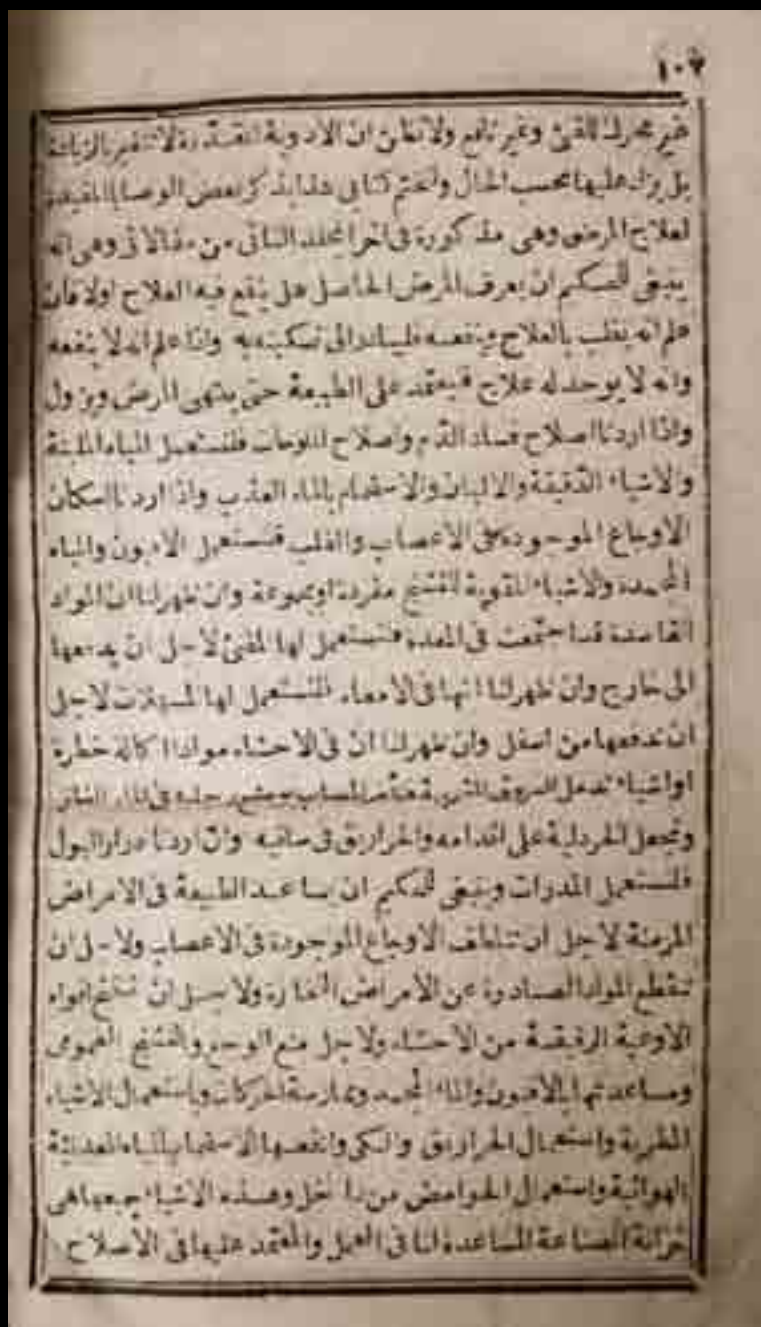 ١٠٢
غير محرك للقئ وغير نافع ولا تظن ان الادوية المقدرة لا تتغير بالزيادة
بل يزاد عليها بحسب الحال ولنختم كتابى هذا بذكر بعض الوصايا المفيدة
لعلاج المرضى وهى مذكورة فى اخر المجلد الثانى من مقالاتى وهى انه
ينبغى للحكيم ان يعرف المرض الحاصل هل ينفع فيه العلاج اولا فان
علم انه يغلب بالعلاج وينفعه فليبادر الى تسكينه به واذا علم انه لا ينفعه
وانه لا يوجد له علاج فيعتمد على الطبيعة حتى ينتهى المرض ويزول
واذا اردنا اصلاح فساد الدم واصلاح فلنستعمل المياه الملينة
والاشياء الدقيقة والالبان والاستحمام بالماء العذب واذا اردنا اسكان
الاوجاع الموجودة فى الاعصاب والقلب فنستعمل الافيون والمياه
المجمدة والاشياء المقوية للتشنج مفردة او مجموعة وان ظهر لنا ان المواد
الفاسدة قد اجتمعت فى المعدة فنستعمل لها المقئ لاجل ان يدفعها
الى خارج وان ظهر لنا انها فى الامعاء فلنستعمل لها المسهلات لاجل
ان تدفعها من اسفل وان ظهر لنا ان فى الاحشاء موادا اكالة خطرة
او اشياء تفعل فنأمر المصاب بوضع رجليه فى الماء
ونجعل الخردلية على اقدامه والحراريق فى ساقيه وان اردنا درار البول
فلنستعمل المدرات وينبغى للحكيم ان يساعد الطبيعة فى الامراض
المزمنة لاجل ان تتلطف الاوجاع الموجودة فى الاعصاب ولاجل ان
تنقطع المواد الصادرة عن الامراض ولاجل ان افواه
الاوعية الرقيقة من الاحشاء ولاجل منع الوجع والتشنج العمومى
ومساعدتها بالافيون والماء المجمد وممارسة الحركات وباستعمال الاشياء
العطرية واستعمال الحراريق والكى وانفعها الاستحمام بالمياه المعدنية
الهوائية واستعمال الحوامض من داخل وهذه الاشياء جميعها هى
خزانة الصناعة المساعدة لنا فى العمل والمعتمد عليها فى الاصلاح